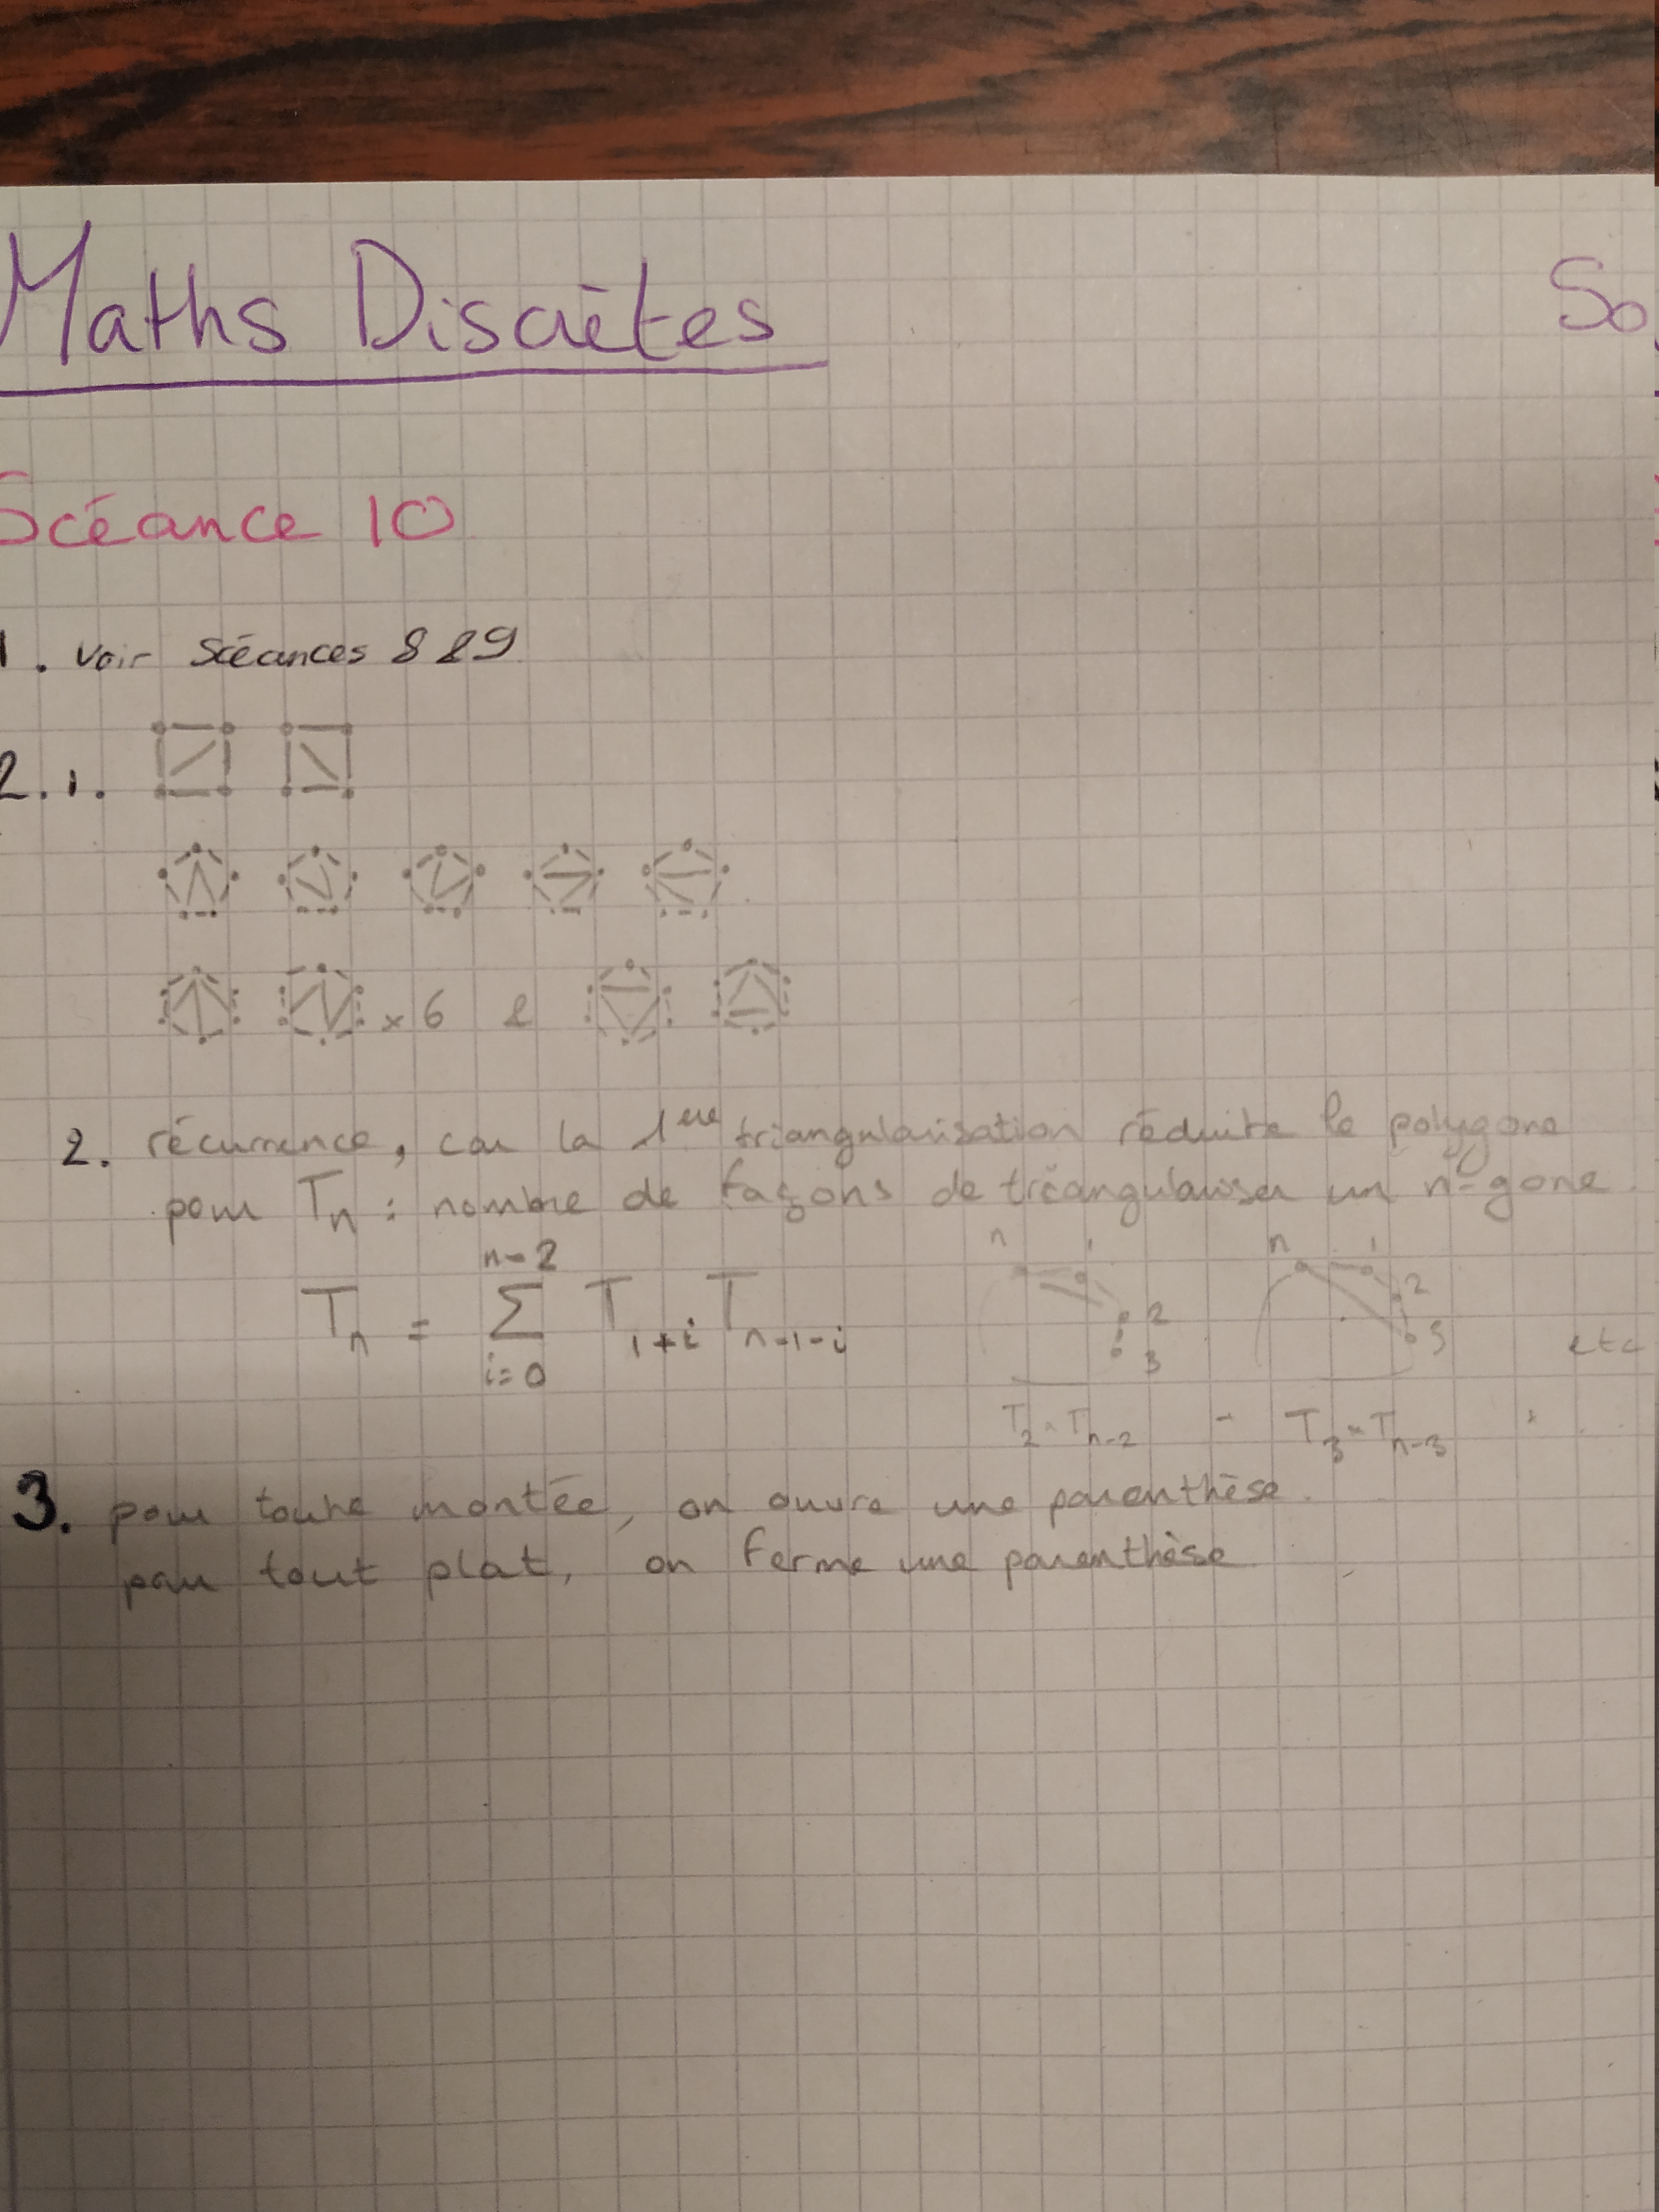 Maths Discrètes
So
Scéance 10
1. voir Scéances 8 & 9
2.1.
x 6 &
2. récurrence, car la 1ere triangularisation réduite le polygone
pour Tn : nombre de façons de triangulariser un n-gone.
Tn = n-2 Σ i=0 T1+i Tn-1-i
n 1 2 3
n 1 2 3 etc
T2 × Tn-2 - T3 × Tn-3
3. pour toute montée, on ouvre une parenthèse.
pour tout plat, on ferme une parenthèse